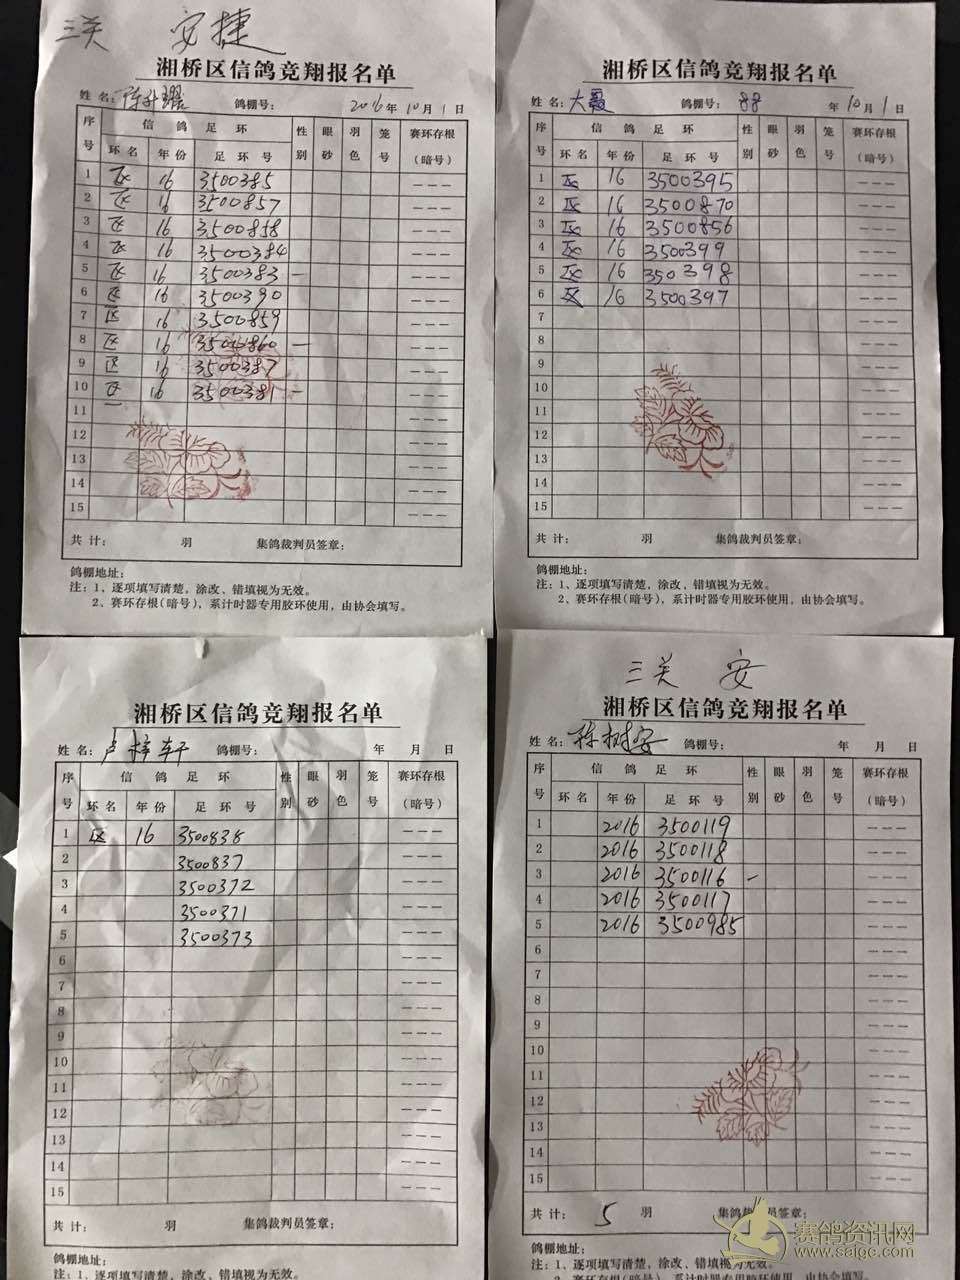 三关 安捷
湘桥区信鸽竞翔报名单
姓名: 陈升 鸽棚号: 2016年10月1日
序号 信鸽足环 性别 眼砂 羽色 笼号 赛环存根(暗号)
环名 年份 足环号
1 区 16 3500385 ———
2 区 16 3500857 ———
3 区 16 3500858 ———
4 区 16 3500384 ———
5 区 16 3500383 — ———
6 区 16 3500390 ———
7 区 16 3500859 ———
8 区 16 3500860 — ———
9 区 16 3500387 ———
10 区 16 3500381 — ———
11 ———
12 ———
13 ———
14 ———
15 ———
共计: 羽 集鸽裁判员签章:
鸽棚地址:
注: 1、逐项填写清楚,涂改、错填视为无效。
2、赛环存根(暗号),系计时器专用胶环使用,由协会填写。
湘桥区信鸽竞翔报名单
姓名: 大 鸽棚号: 88 年10月1日
序号 信鸽足环 性别 眼砂 羽色 笼号 赛环存根(暗号)
环名 年份 足环号
1 区 16 3500395 ———
2 区 16 3500870 ———
3 区 16 3500856 ———
4 区 16 3500399 ———
5 区 16 3500398 ———
6 区 16 3500397 ———
7 ———
8 ———
9 ———
10 ———
11 ———
12 ———
13 ———
14 ———
15 ———
共计: 羽 集鸽裁判员签章:
鸽棚地址:
注: 1、逐项填写清楚,涂改、错填视为无效。
2、赛环存根(暗号),系计时器专用胶环使用,由协会填写。
湘桥区信鸽竞翔报名单
姓名: 卢梓轩 鸽棚号: 年 月 日
序号 信鸽足环 性别 眼砂 羽色 笼号 赛环存根(暗号)
环名 年份 足环号
1 区 16 3500838 ———
2 3500837 ———
3 3500372 ———
4 3500371 ———
5 3500373 ———
6 ———
7 ———
8 ———
9 ———
10 ———
11 ———
12 ———
13 ———
14 ———
15 ———
共计: 羽 集鸽裁判员签章:
鸽棚地址:
注: 1、逐项填写清楚,涂改、错填视为无效。
三关 安
湘桥区信鸽竞翔报名单
姓名: 陈树安 鸽棚号: 年 月 日
序号 信鸽足环 性别 眼砂 羽色 笼号 赛环存根(暗号)
环名 年份 足环号
1 2016 3500119 ———
2 2016 3500118 ———
3 2016 3500116 — ———
4 2016 3500117 ———
5 2016 3500985 ———
6 ———
7 ———
8 ———
9 ———
10 ———
11 ———
12 ———
13 ———
14 ———
15 ———
共计: 5 羽 集鸽裁判员签章:
鸽棚地址:
注: 1、逐项填写清楚,涂改、错填视为无效。
赛鸽资讯网
www.saigc.com